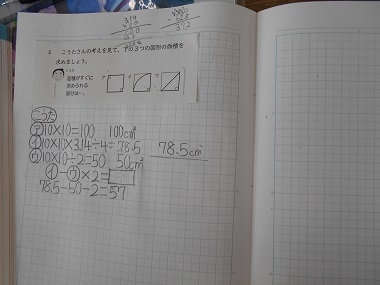 2 こうたさんの考えを見て、アの3つの図形の面積を
求めましょう。
面積がすぐに
求められる
部分は…。
ア イ ウ
こうた
ア 10×10=100 100cm²
イ 10×10×3.14÷4=78.5 78.5cm²
ウ 10×10÷2=50 50cm²
イ-ウ×2=
78.5-50-2=57